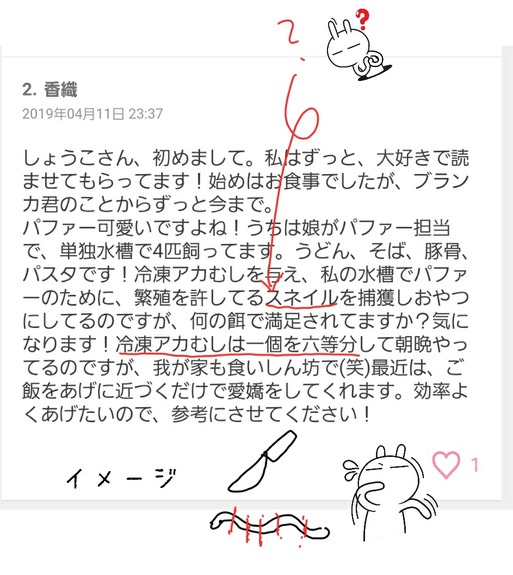 ?
?
2. 香織
2019年04月11日 23:37
しょうこさん、初めまして。私はずっと、大好きで読
ませてもらってます！始めはお食事でしたが、ブラン
カ君のことからずっと今まで。
パファー可愛いですよね！うちは娘がパファー担当
で、単独水槽で4匹飼ってます。うどん、そば、豚骨、
パスタです！冷凍アカむしを与え、私の水槽でパファ
ーのために、繁殖を許してるスネイルを捕獲しおやつ
にしてるのですが、何の餌で満足されてますか？気に
なります！冷凍アカむしは一個を六等分して朝晩やっ
てるのですが、我が家も食いしん坊で(笑)最近は、ご
飯をあげに近づくだけで愛嬌をしてくれます。効率よ
くあげたいので、参考にさせてください！
1
イメージ